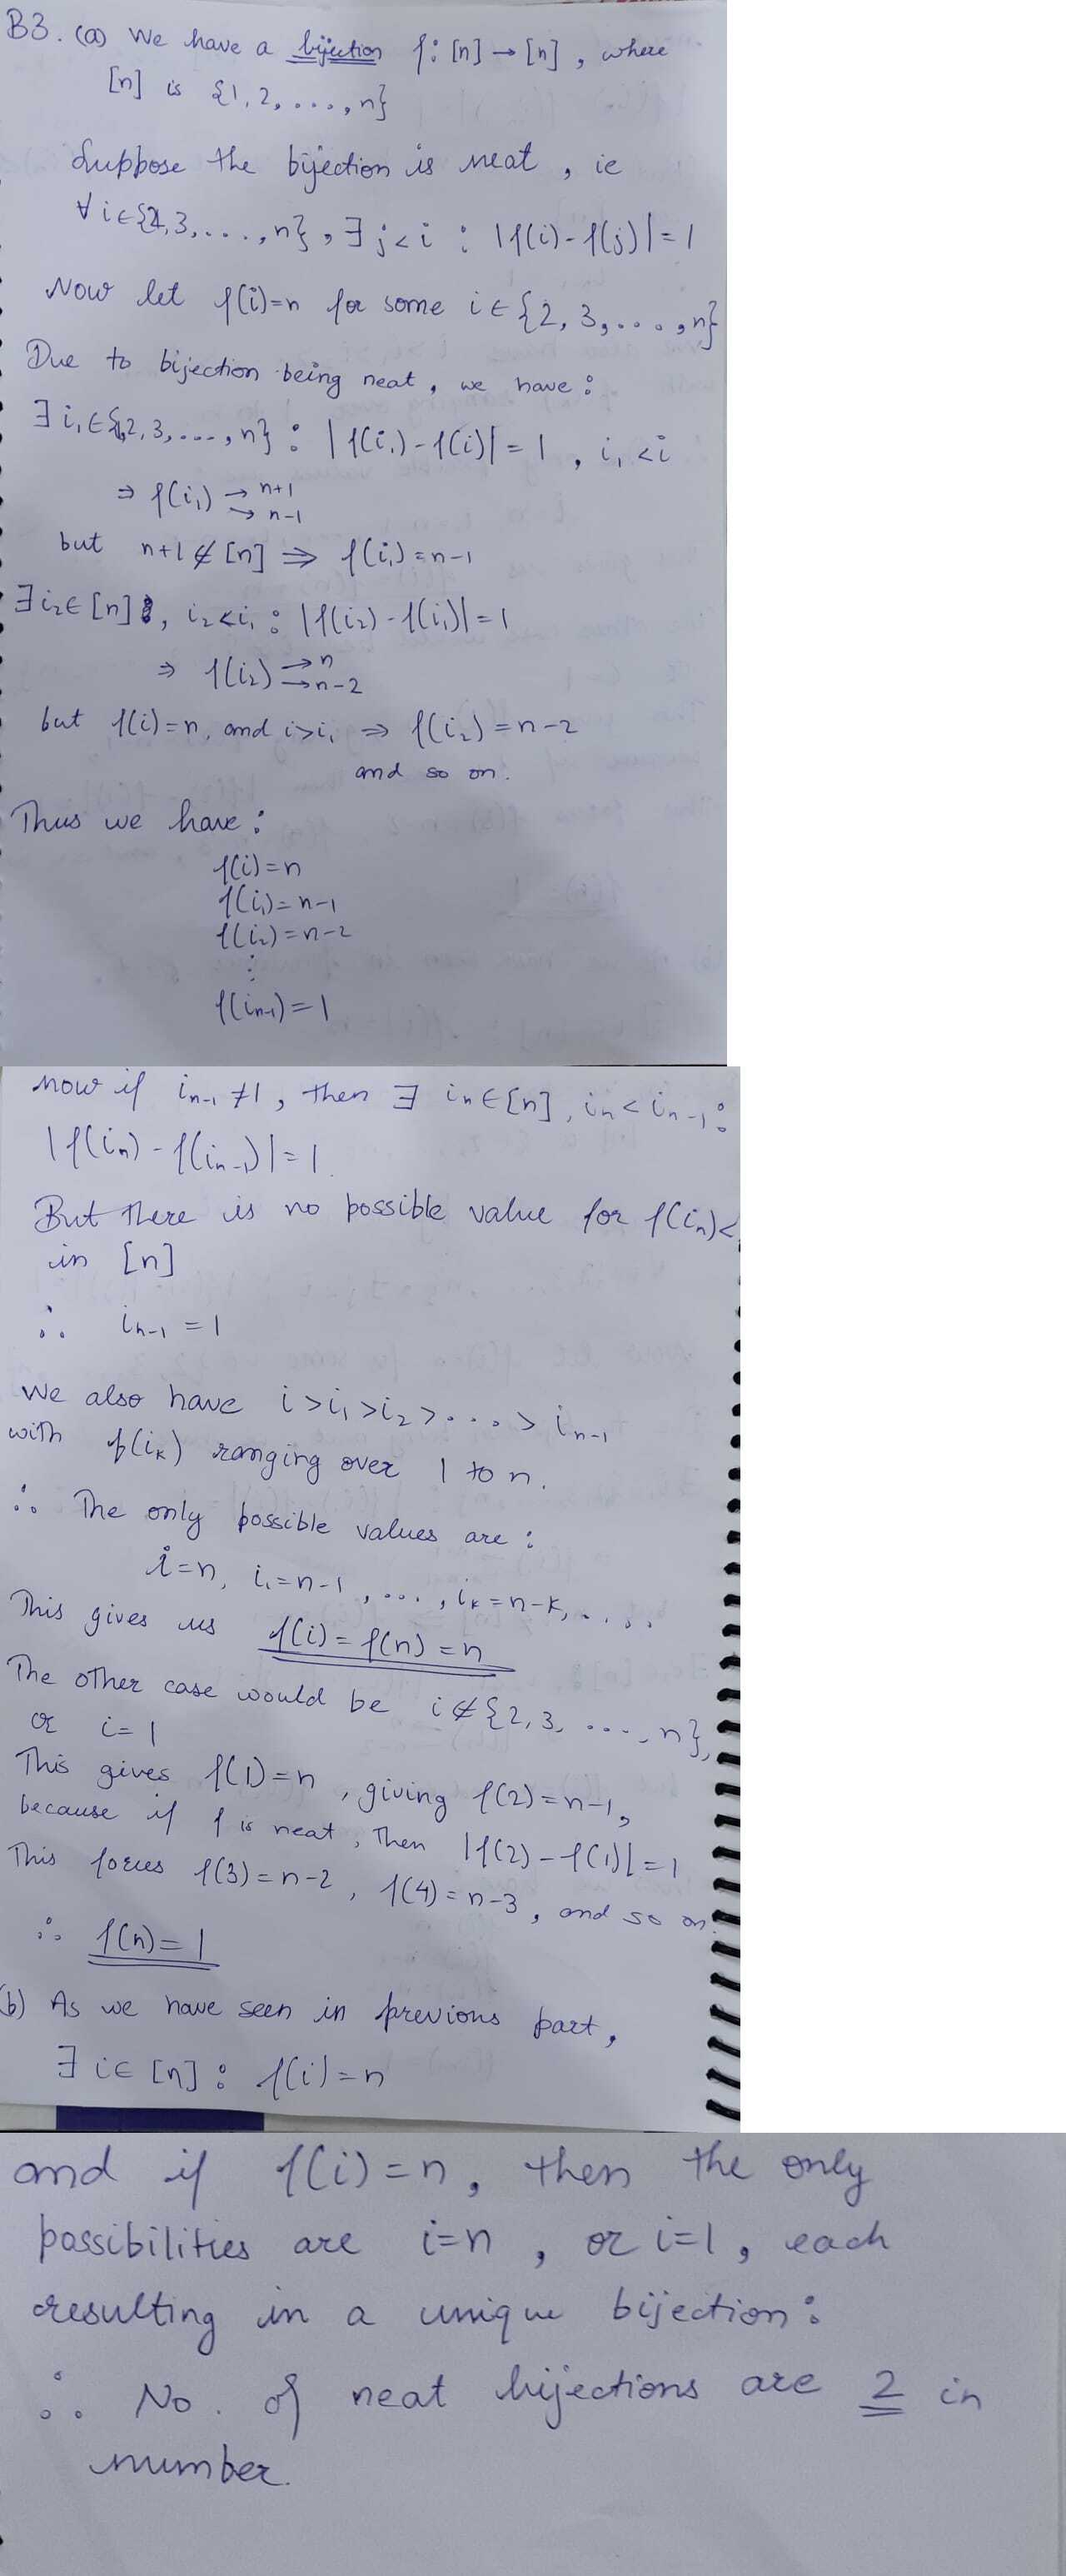 B3. (a) We have a bijection f: [n] → [n], where
[n] is {1, 2, ...., n}
Suppose the bijection is neat, ie
∀ i∈{2,3,...., n}, ∃ j<i : |f(i)-f(j)|=1
Now let f(i)=n for some i ∈ {2, 3, ...., n}
Due to bijection being neat, we have:
∃ i₁∈{1,2,3,....,n} : |f(i₁)-f(i)|=1, i₁<i
⇒ f(i₁) → n+1
→ n-1
but n+1 ∉ [n] ⇒ f(i₁)=n-1
∃ i₂∈ [n], i₂<i₁ : |f(i₂)-f(i₁)|=1
⇒ f(i₂) → n
→ n-2
but f(i)=n, and i>i₁ ⇒ f(i₂)=n-2
and so on.
Thus we have:
f(i)=n
f(i₁)=n-1
f(i₂)=n-2
⋮
f(iₙ₋₁)=1
Now if iₙ₋₁≠1, then ∃ iₙ∈[n], iₙ<iₙ₋₁:
|f(iₙ)-f(iₙ₋₁)|=1
But there is no possible value for f(iₙ)<
in [n]
∴ iₙ₋₁ = 1
We also have i>i₁>i₂>....> iₙ₋₁
with f(iₖ) ranging over 1 to n.
∴ The only possible values are:
i=n, i₁=n-1, ..., iₖ=n-k, ....
This gives us f(i)=f(n)=n
The other case would be i∉{2,3, ...., n},
or i=1
This gives f(1)=n, giving f(2)=n-1,
because if f is neat, then |f(2)-f(1)|=1
This forces f(3)=n-2, f(4)=n-3, and so on.
∴ f(n)=1
(b) As we have seen in previous part,
∃ i∈ [n] : f(i)=n
and if f(i)=n, then the only
possibilities are i=n, or i=1, each
resulting in a unique bijection:
∴ No. of neat bijections are 2 in
number.